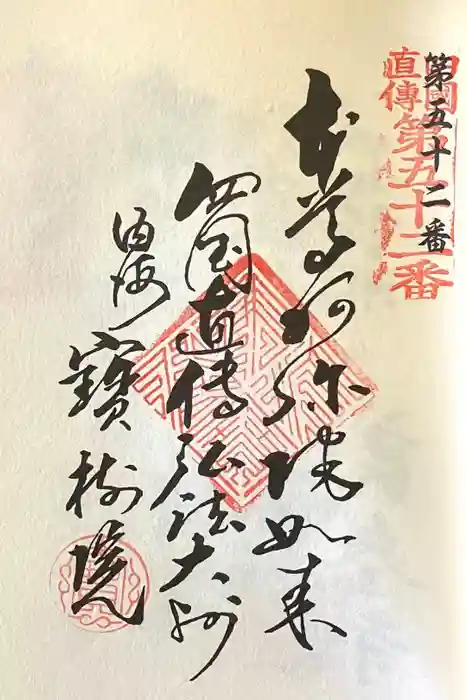 四國
直傳
第五十二番
第五十二番
本尊阿弥陀如来
四国直傳弘法大師
寶樹院